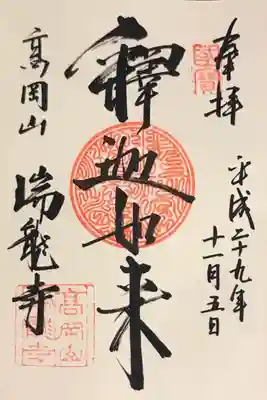 奉拝
平成二十九年
十一月五日
釋迦如来
高岡山
瑞龍寺
國寶
高岡山
瑞龍寺